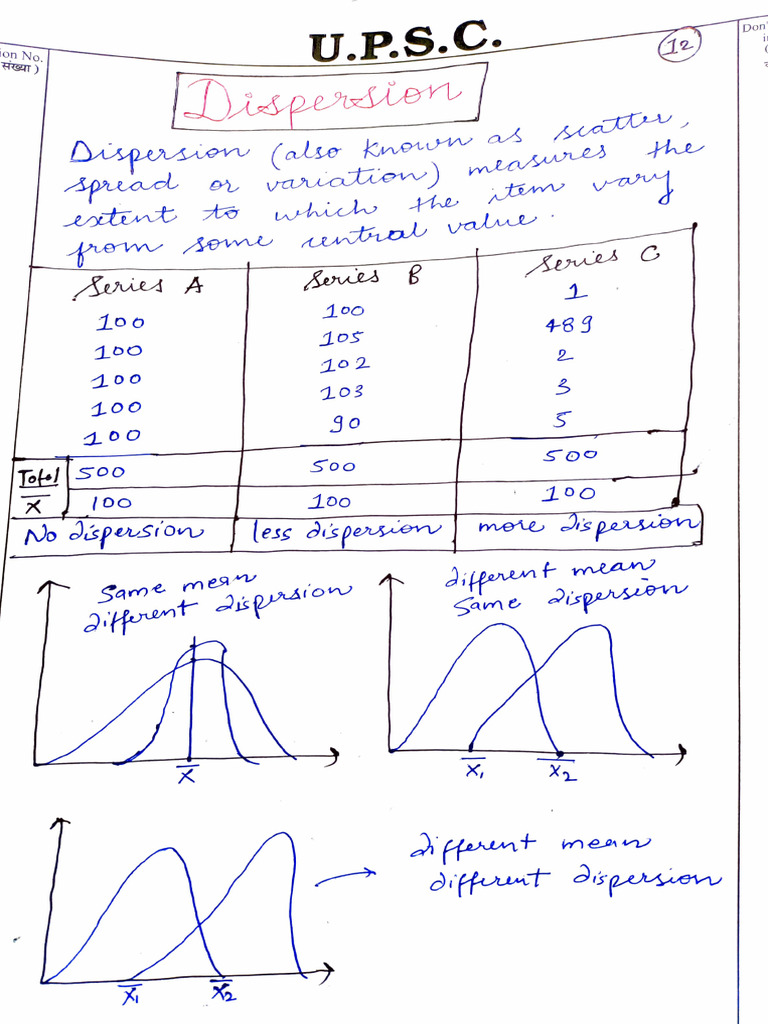 U.P.S.C.
12
Don'
ion No.
संख्या )
Dispersion
Dispersion (also known as scatter,
spread or variation) measures the
extent to which the item vary
from some central value.
Series A Series B Series C
100 100 1
100 105 489
100 102 2
100 103 3
100 90 5
Total 500 500 500
X̅ 100 100 100
No dispersion less dispersion more dispersion
Same mean
different dispersion
different mean
Same dispersion
X̅
X̅1 X̅2
different mean
different dispersion
X̅1 X̅2